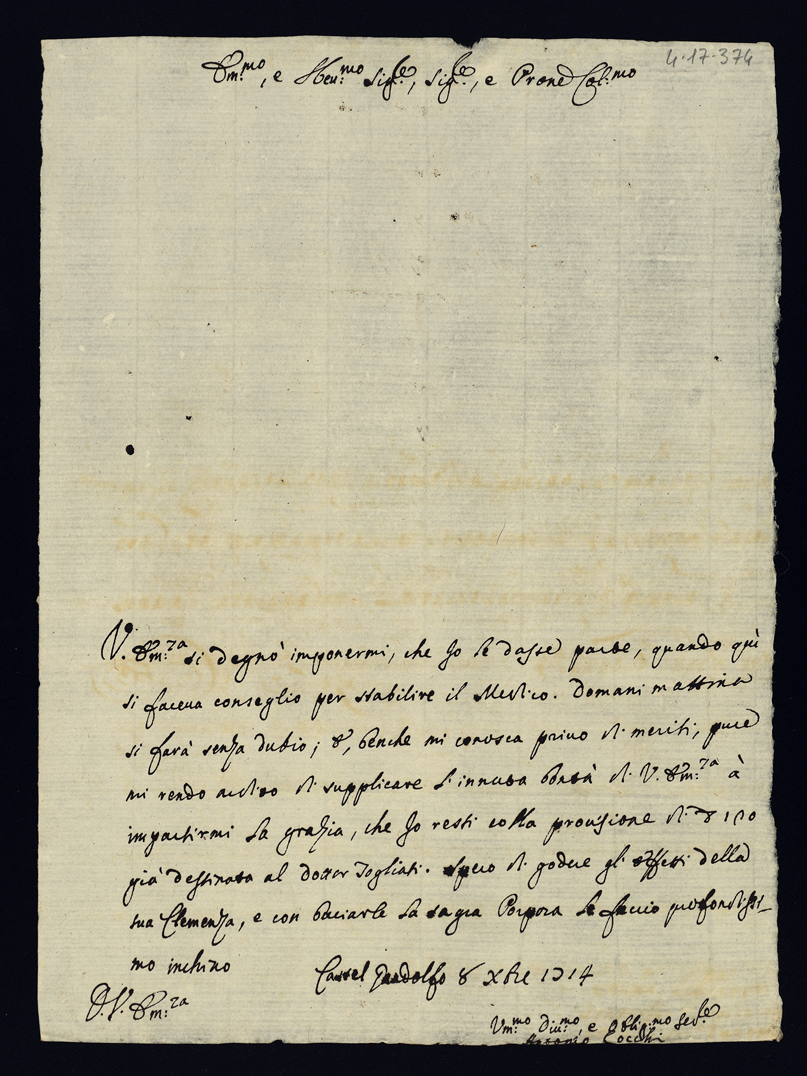 4.17.374
Em.mo, e Reu.mo Sig.re, Sig.re, e Prone Col.mo
V. Em.za si degnò imponermi, che Io le dasse parte, quando quì
si faceva conseglio per stabilire il Medico. Domani mattina
si farà senza dubio; &, benche mi conosca privo di meriti, pure
mi rendo ardito di supplicare l'innata bontà di V. Em.za à
impartirmi la grazia, che Io resti colla provisione di
già destinata al Dottor Togliati. Spero di godere gl'effetti della
sua Clemenza, e con baciarle la sagra Porpora le faccio profondissi-
mo inchino
Castel Gandolfo 8 Xbre 1714
D. V. Em.za
Vm.mo Diu.mo, e Oblig.mo Ser.re
Antonio Cocchi